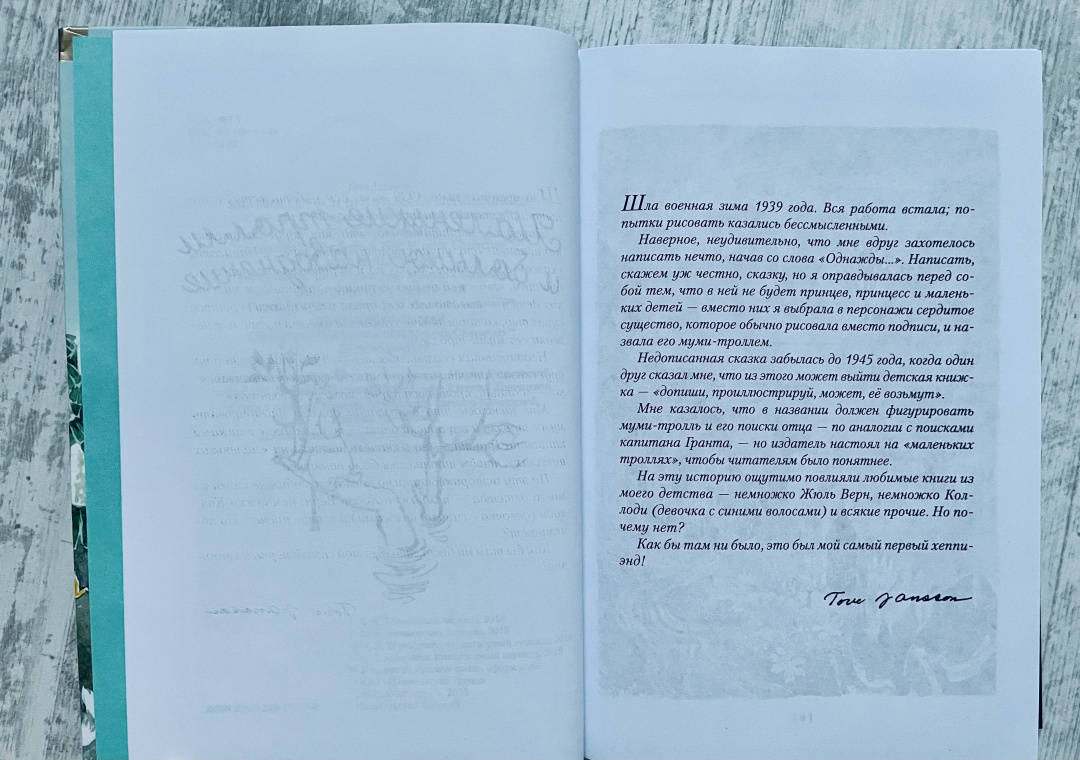 Шла военная зима 1939 года. Вся работа встала; по-
пытки рисовать казались бессмысленными.
Наверное, неудивительно, что мне вдруг захотелось
написать нечто, начав со слова «Однажды...». Написать,
скажем уж честно, сказку, но я оправдывалась перед со-
бой тем, что в ней не будет принцев, принцесс и малень-
ких детей — вместо них я выбрала в персонажи сердитое
существо, которое обычно рисовала вместо подписи, и на-
звала его муми-троллем.
Недописанная сказка забылась до 1945 года, когда один
друг сказал мне, что из этого может выйти детская книж-
ка — «допиши, проиллюстрируй, может, её возьмут».
Мне казалось, что в названии должен фигурировать
муми-тролль и его поиски отца — по аналогии с поисками
капитана Гранта, — но издатель настоял на «маленьких
троллях», чтобы читателям было понятнее.
На эту историю ощутимо повлияли любимые книги из
моего детства — немножко Жюль Верн, немножко Кол-
лоди (девочка с синими волосами) и всякие прочие. Но по-
чему нет?
Как бы там ни было, это был мой самый первый хеппи-
энд!
Tove Jansson